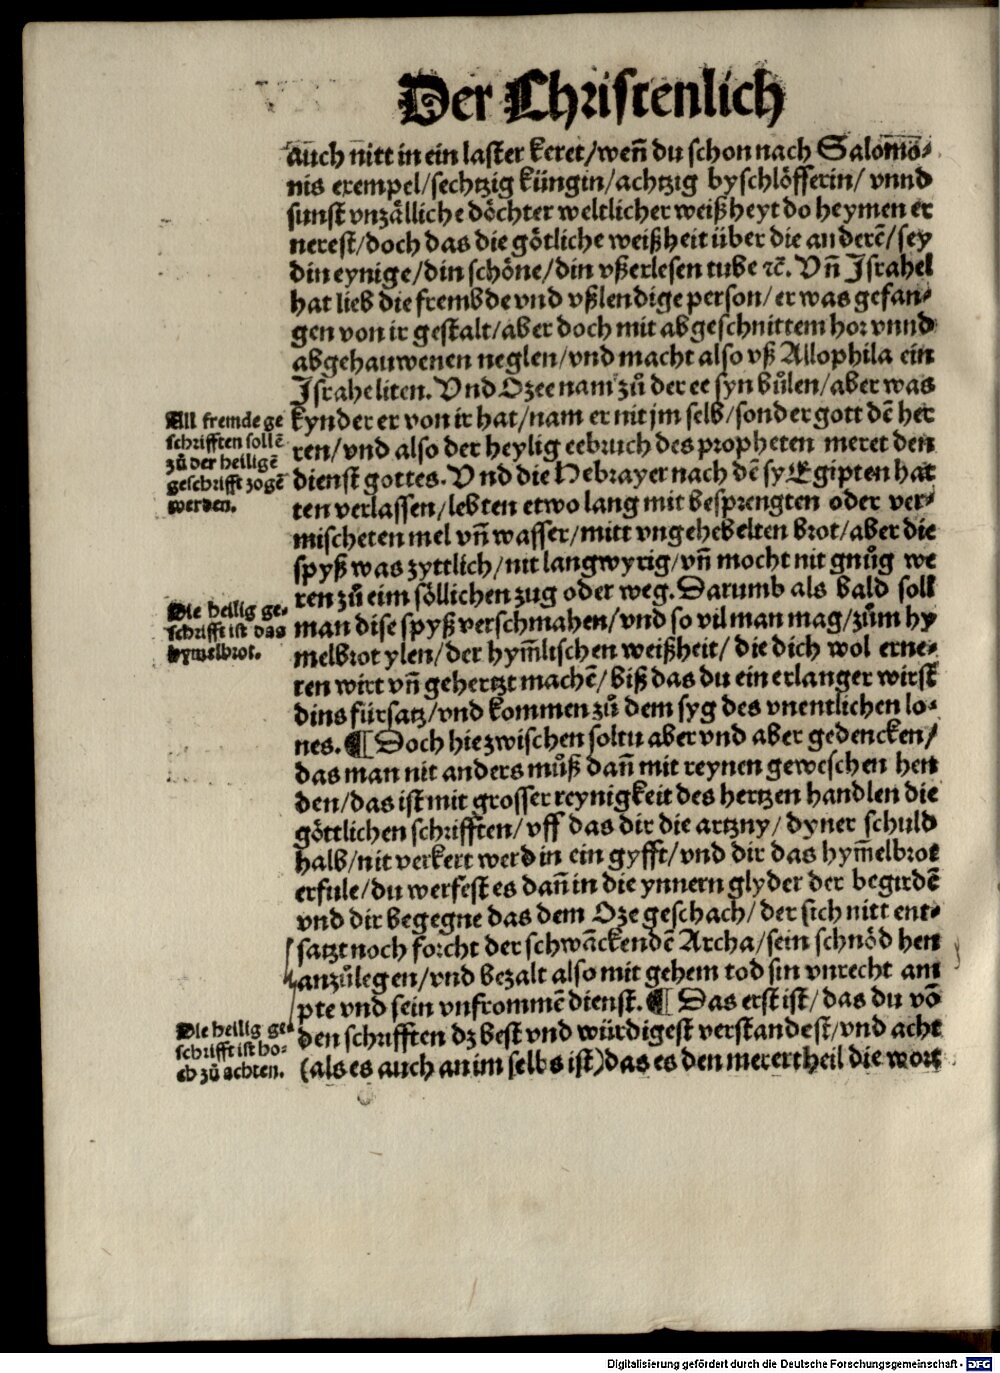 Der Christenlich
auch nitt in ein laster keret/wen̄ du schon nach Salomo⸗
nis exempel/sechtzig küngin/achtzig byschlöfferin/ vnnd
sunst vnzälliche döchter weltlicher weißheyt do heymen er
nerest/doch das die götliche weißheit über die anderē/sey
din eynige/din schöne/din vßerlesen tube ꝛc̄. Vn̄ Israhel
hat lieb die frembde vnd vßlendige person/er was gefan⸗
gen von ir gestalt/aber doch mit abgeschnittem hor vnnd
abgehauwenen neglen/vnd macht also vß Allophila ein
Israheliten. Vnd Ozee nam zů der ee syn bůlen/aber was
kynder er von ir hat/nam er nit jm selb/sonder gott dē her
ren/vnd also der heylig eebruch des propheten meret den
dienst gottes. Vnd die Hebrayer nach dē sy Egipten hat
ten verlassen/lebten etwo lang mit besprengten oder ver⸗
mischeten mel vn̄ wasser/mitt vngehebelten brot/aber die
spyß was zyttlich/nit langwyrig/vn̄ mocht nit gnůg we
ren zů eim söllichen zug oder weg. Darumb als bald soll
man dise spyß verschmahen/vnd so vil man mag/zům hy
melbrot ylen/der hym̄lischen weißheit/ die dich wol erne⸗
ren wirt vn̄ gehertzt machē/biß das du ein erlanger wirst
dins fürsatz/vnd kommen zů dem syg des vnentlichen lo⸗
nes. ¶ Doch hie zwischen soltu aber vnd aber gedencken/
das man nit anders můß dan̄ mit reynen geweschen hen
den/das ist mit grosser reynigkeit des hertzen handlen die
göttlichen schrifften/vff das dir die artzny/dyner schuld
halb/nit verkert werd in ein gyfft/vnd dir das hym̄elbrot
erfule/du werfest es dan̄ in die ynnern glyder der begirdē
vnd dir begegne das dem Oze geschach/der sich nitt ent⸗
satzt noch forcht der schwāckendē Archa/sein schnöd hen
anzůlegen/vnd bezalt also mit gehem tod sin vnrecht am
pte vnd sein vnfrommē dienst. ¶ Das erst ist/das du vō
den schrifften dz best vnd würdigest verstandest/vnd acht
(als es auch an im selbs ist)das es den merertheil die wort
All fremde ge
schrifften sollē
zů der heiligē
geschrifft zogē
werden.
Die heilig ge⸗
schrifft ist das
hymelbrot.
Die heilig ge⸗
schrifft ist ho⸗
ch zů achten.
Digitalisierung gefördert durch die Deutsche Forschungsgemeinschaft - DFG